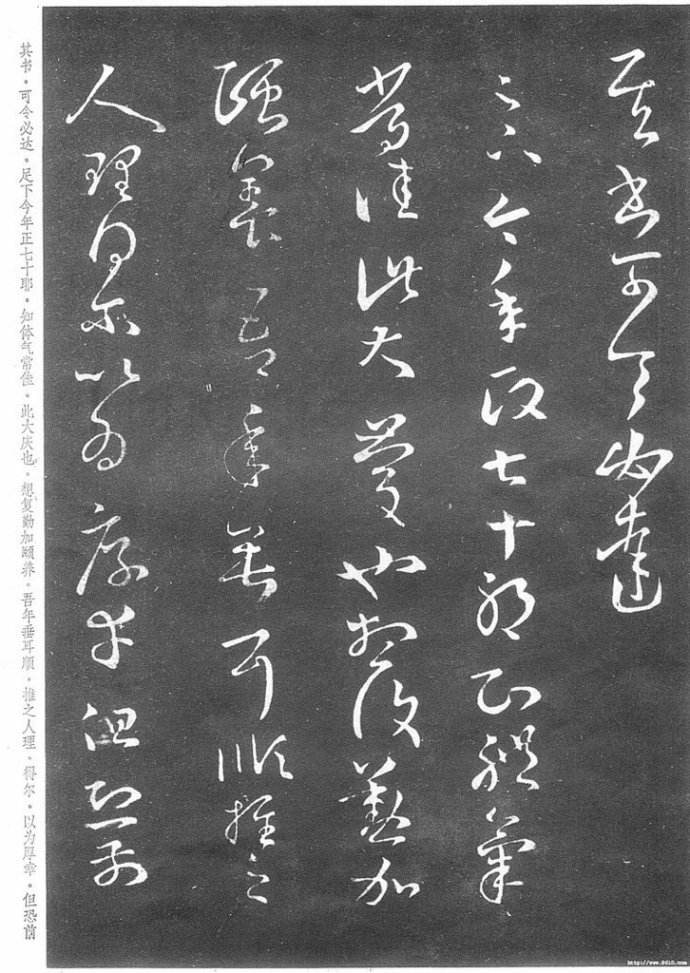 其書可令必達
足下今年政七十耶知體氣
常佳此大慶也想復懃加
頤養吾年垂耳順推之
人理得爾以為厚幸但恐前
其书·可令必达·足下今年正七十耶·知体气常佳·此大庆也·想复勤加颐养·吾年垂耳順·推之人理·得尔·以为厚幸·但恐前
http://www.9610.com